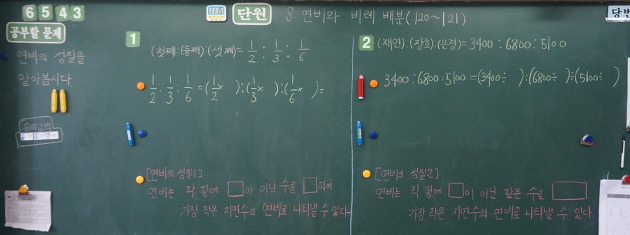 6 5 4 3
단원
8. 연비와 비례 배분(120~121)
당번
공부할 문제
연비의 성질을
알아봅시다
1
(첫째):(둘째):(셋째)= 1/2 : 1/3 : 1/6
1/2 : 1/3 : 1/6 = (1/2 × ):(1/3 × ):(1/6 × )=
[연비의 성질1]
연비는 각 항에 □이 아닌 수를 □하여
가장 작은 자연수의 연비로 나타낼 수 있다
2
(재민):(장호):(은경)=3400:6800:5100
3400:6800:5100=(3400÷ ):(6800÷ ):(5100÷ )
[연비의 성질2]
연비는 각 항에 □이 아닌 같은 수로 □
가장 작은 자연수의 연비로 나타낼 수 있다